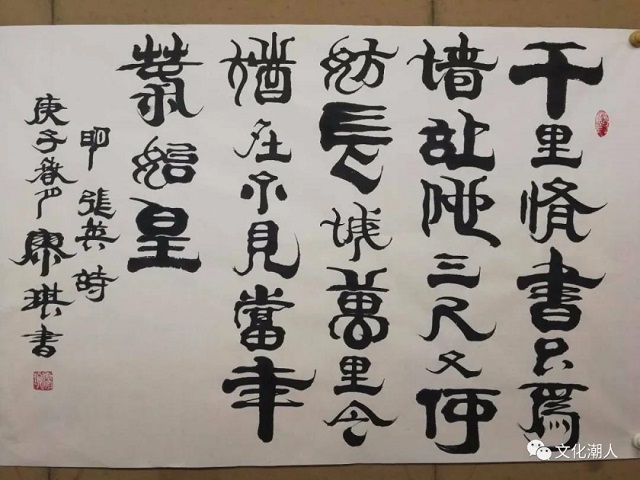 千里脩書只為
墙让他三尺又何
妨長城萬里今
猶在不見當年
秦始皇
明 張英詩
庚子 廖琪書
文化潮人